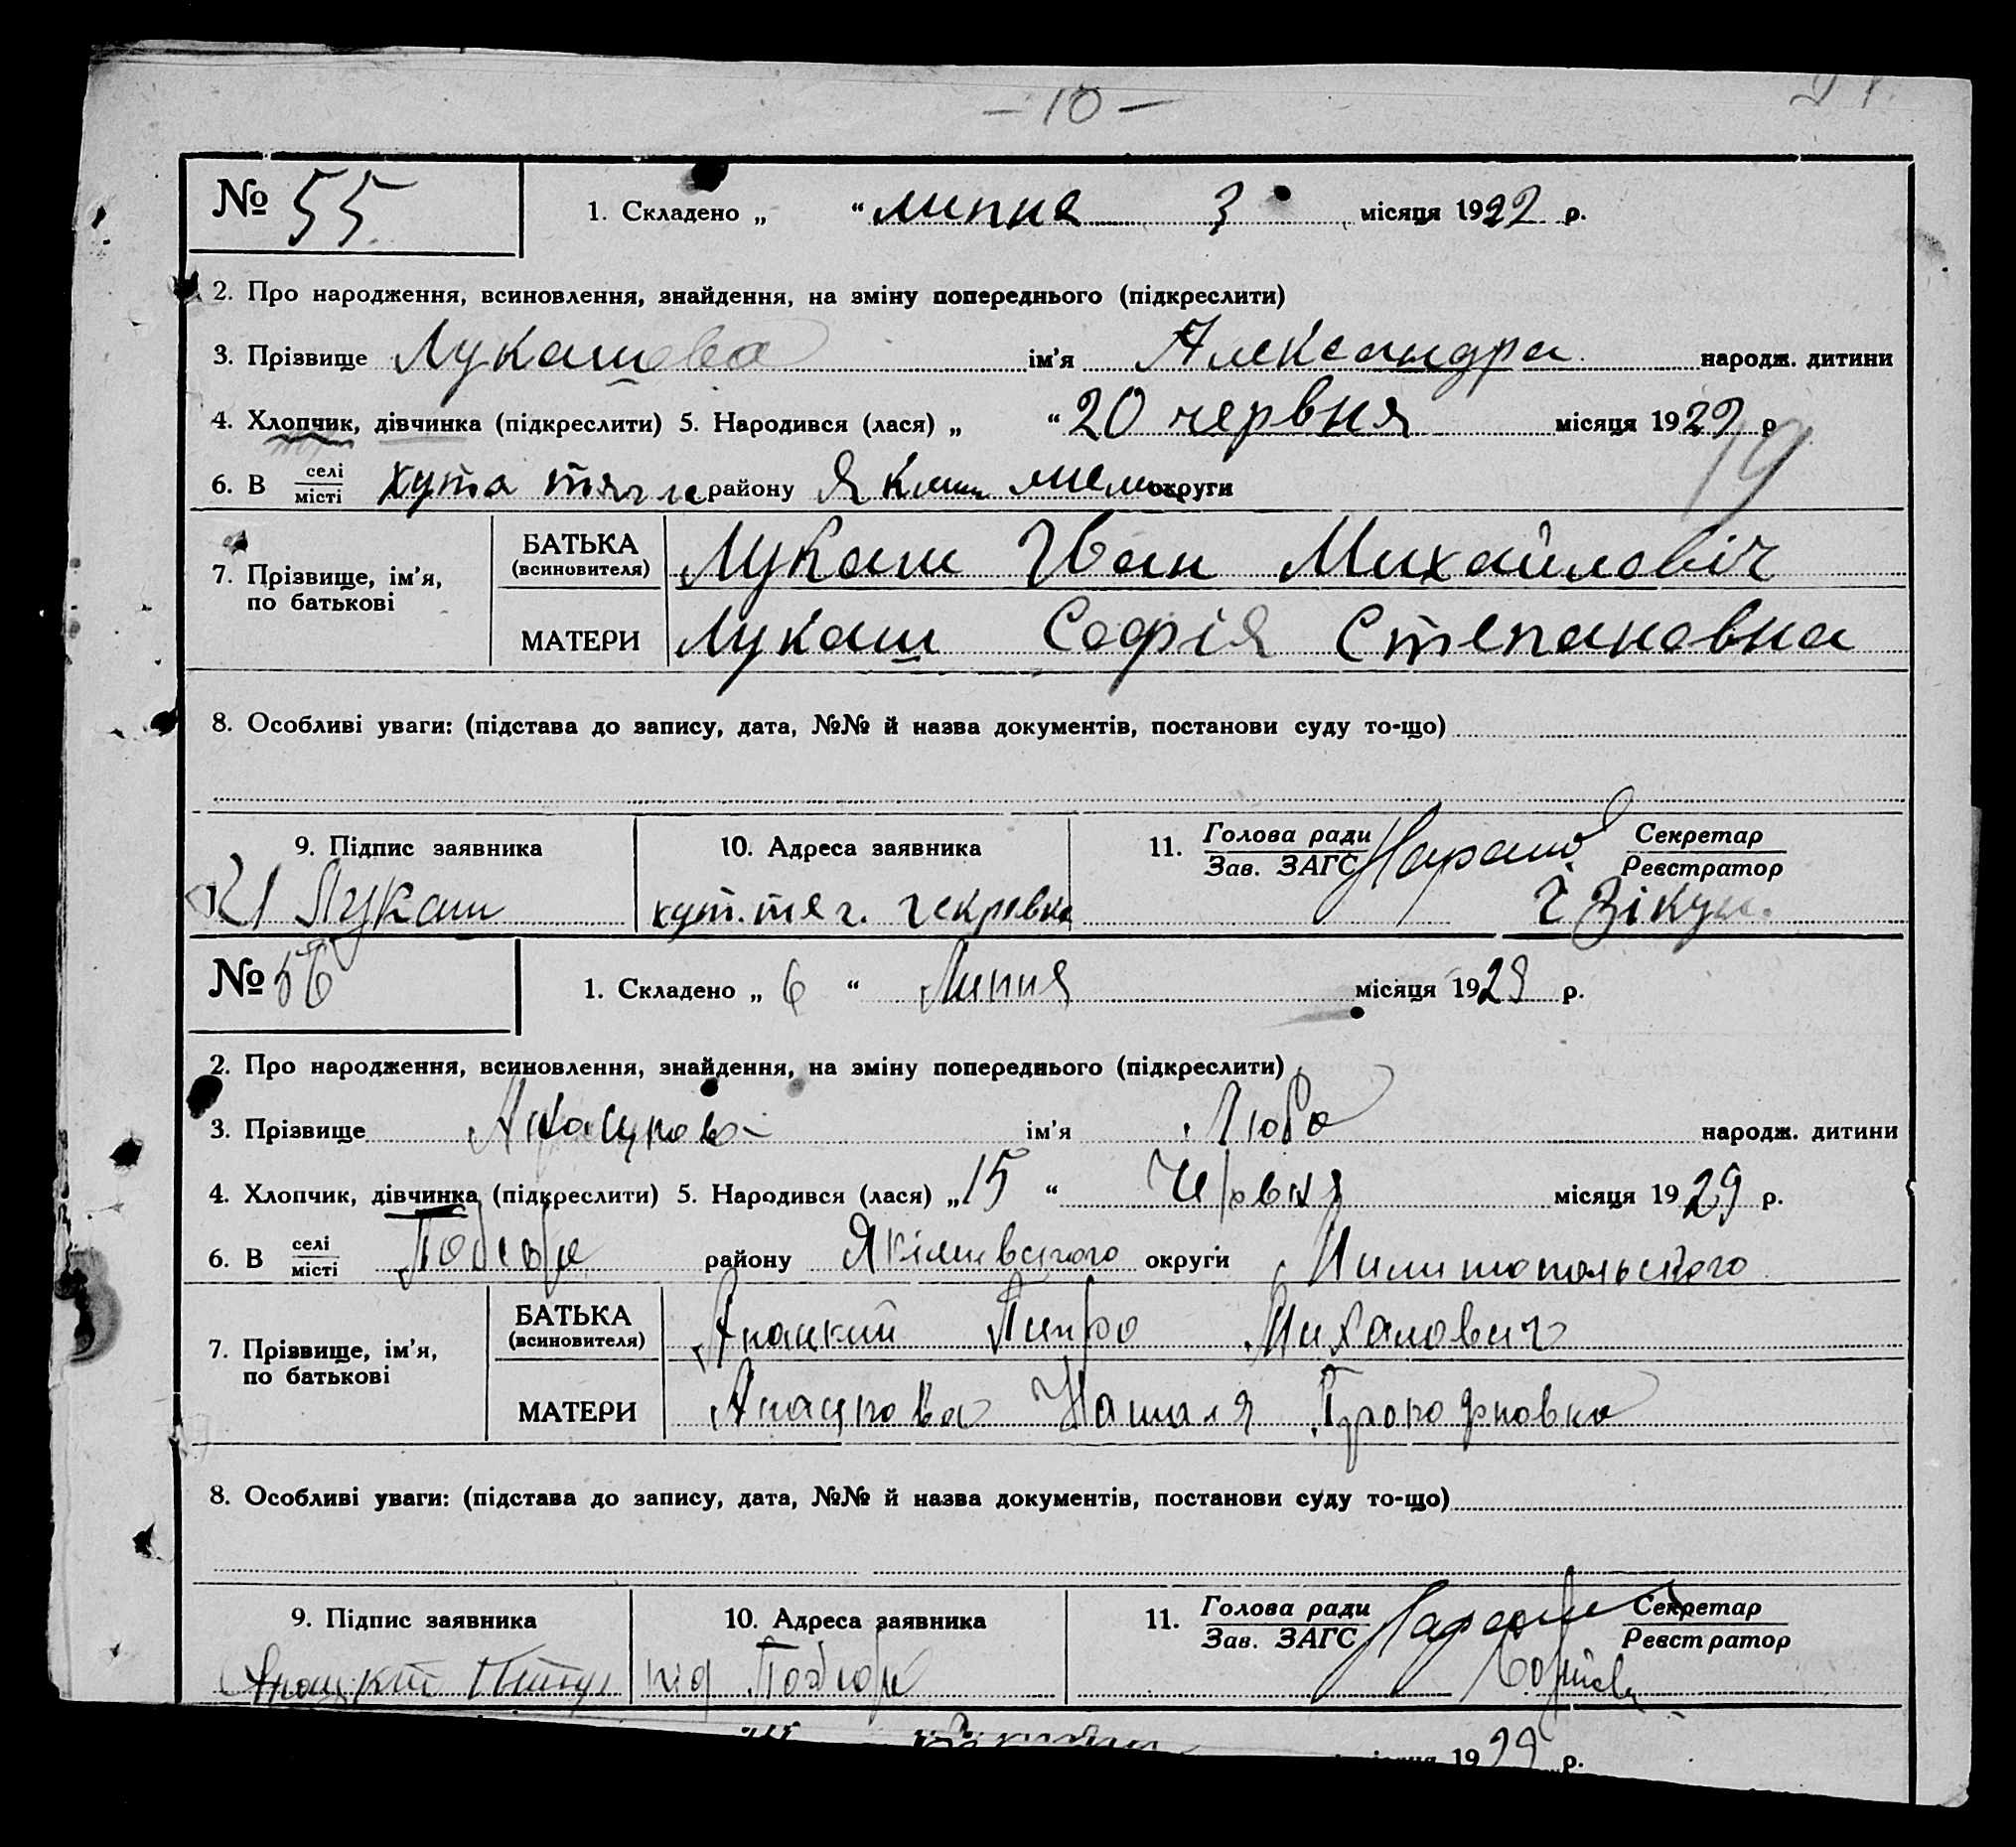 — 10 —
№ 55
1. Складено „ “ липня 3 місяця 1922 р.
2. Про народження, всиновлення, знайдення, на зміну попереднього (підкреслити)
3. Прізвище Лукашова ім’я Александра народж. дитини
4. Хлопчик, дівчинка (підкреслити) 5. Народився (лася) „ “ 20 червня місяця 1929 р
19
6. В селі/місті хута тягле району Яким Мели округи
7. Прізвище, ім’я, по батькові
БАТЬКА (всиновителя) Лукаш Іван Михайловіч
МАТЕРИ Лукаш Софія Степановна
8. Особливі уваги: (підстава до запису, дата, №№ й назва документів, постанови суду то-що)
9. Підпис заявника 10. Адреса заявника 11. Голова ради/Зав. ЗАГС Секретар/Реєстратор
Лукаш хут. тяг.
№ 56
1. Складено „ 6 “ Липня місяця 1929 р.
2. Про народження, всиновлення, знайдення, на зміну попереднього (підкреслити)
3. Прізвище ім’я Люба народж. дитини
4. Хлопчик, дівчинка (підкреслити) 5. Народився (лася) „ 15 “ Червня місяця 1929 р.
6. В селі/місті району Якімівського округи Милитопольського
7. Прізвище, ім’я, по батькові
БАТЬКА (всиновителя) Михалович
МАТЕРИ Наталя
8. Особливі уваги: (підстава до запису, дата, №№ й назва документів, постанови суду то-що)
9. Підпис заявника 10. Адреса заявника 11. Голова ради/Зав. ЗАГС Секретар/Реєстратор
1929 р.